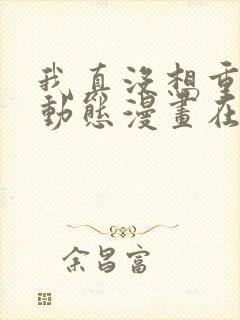 我真沒想重
動態漫畫在
余昌富